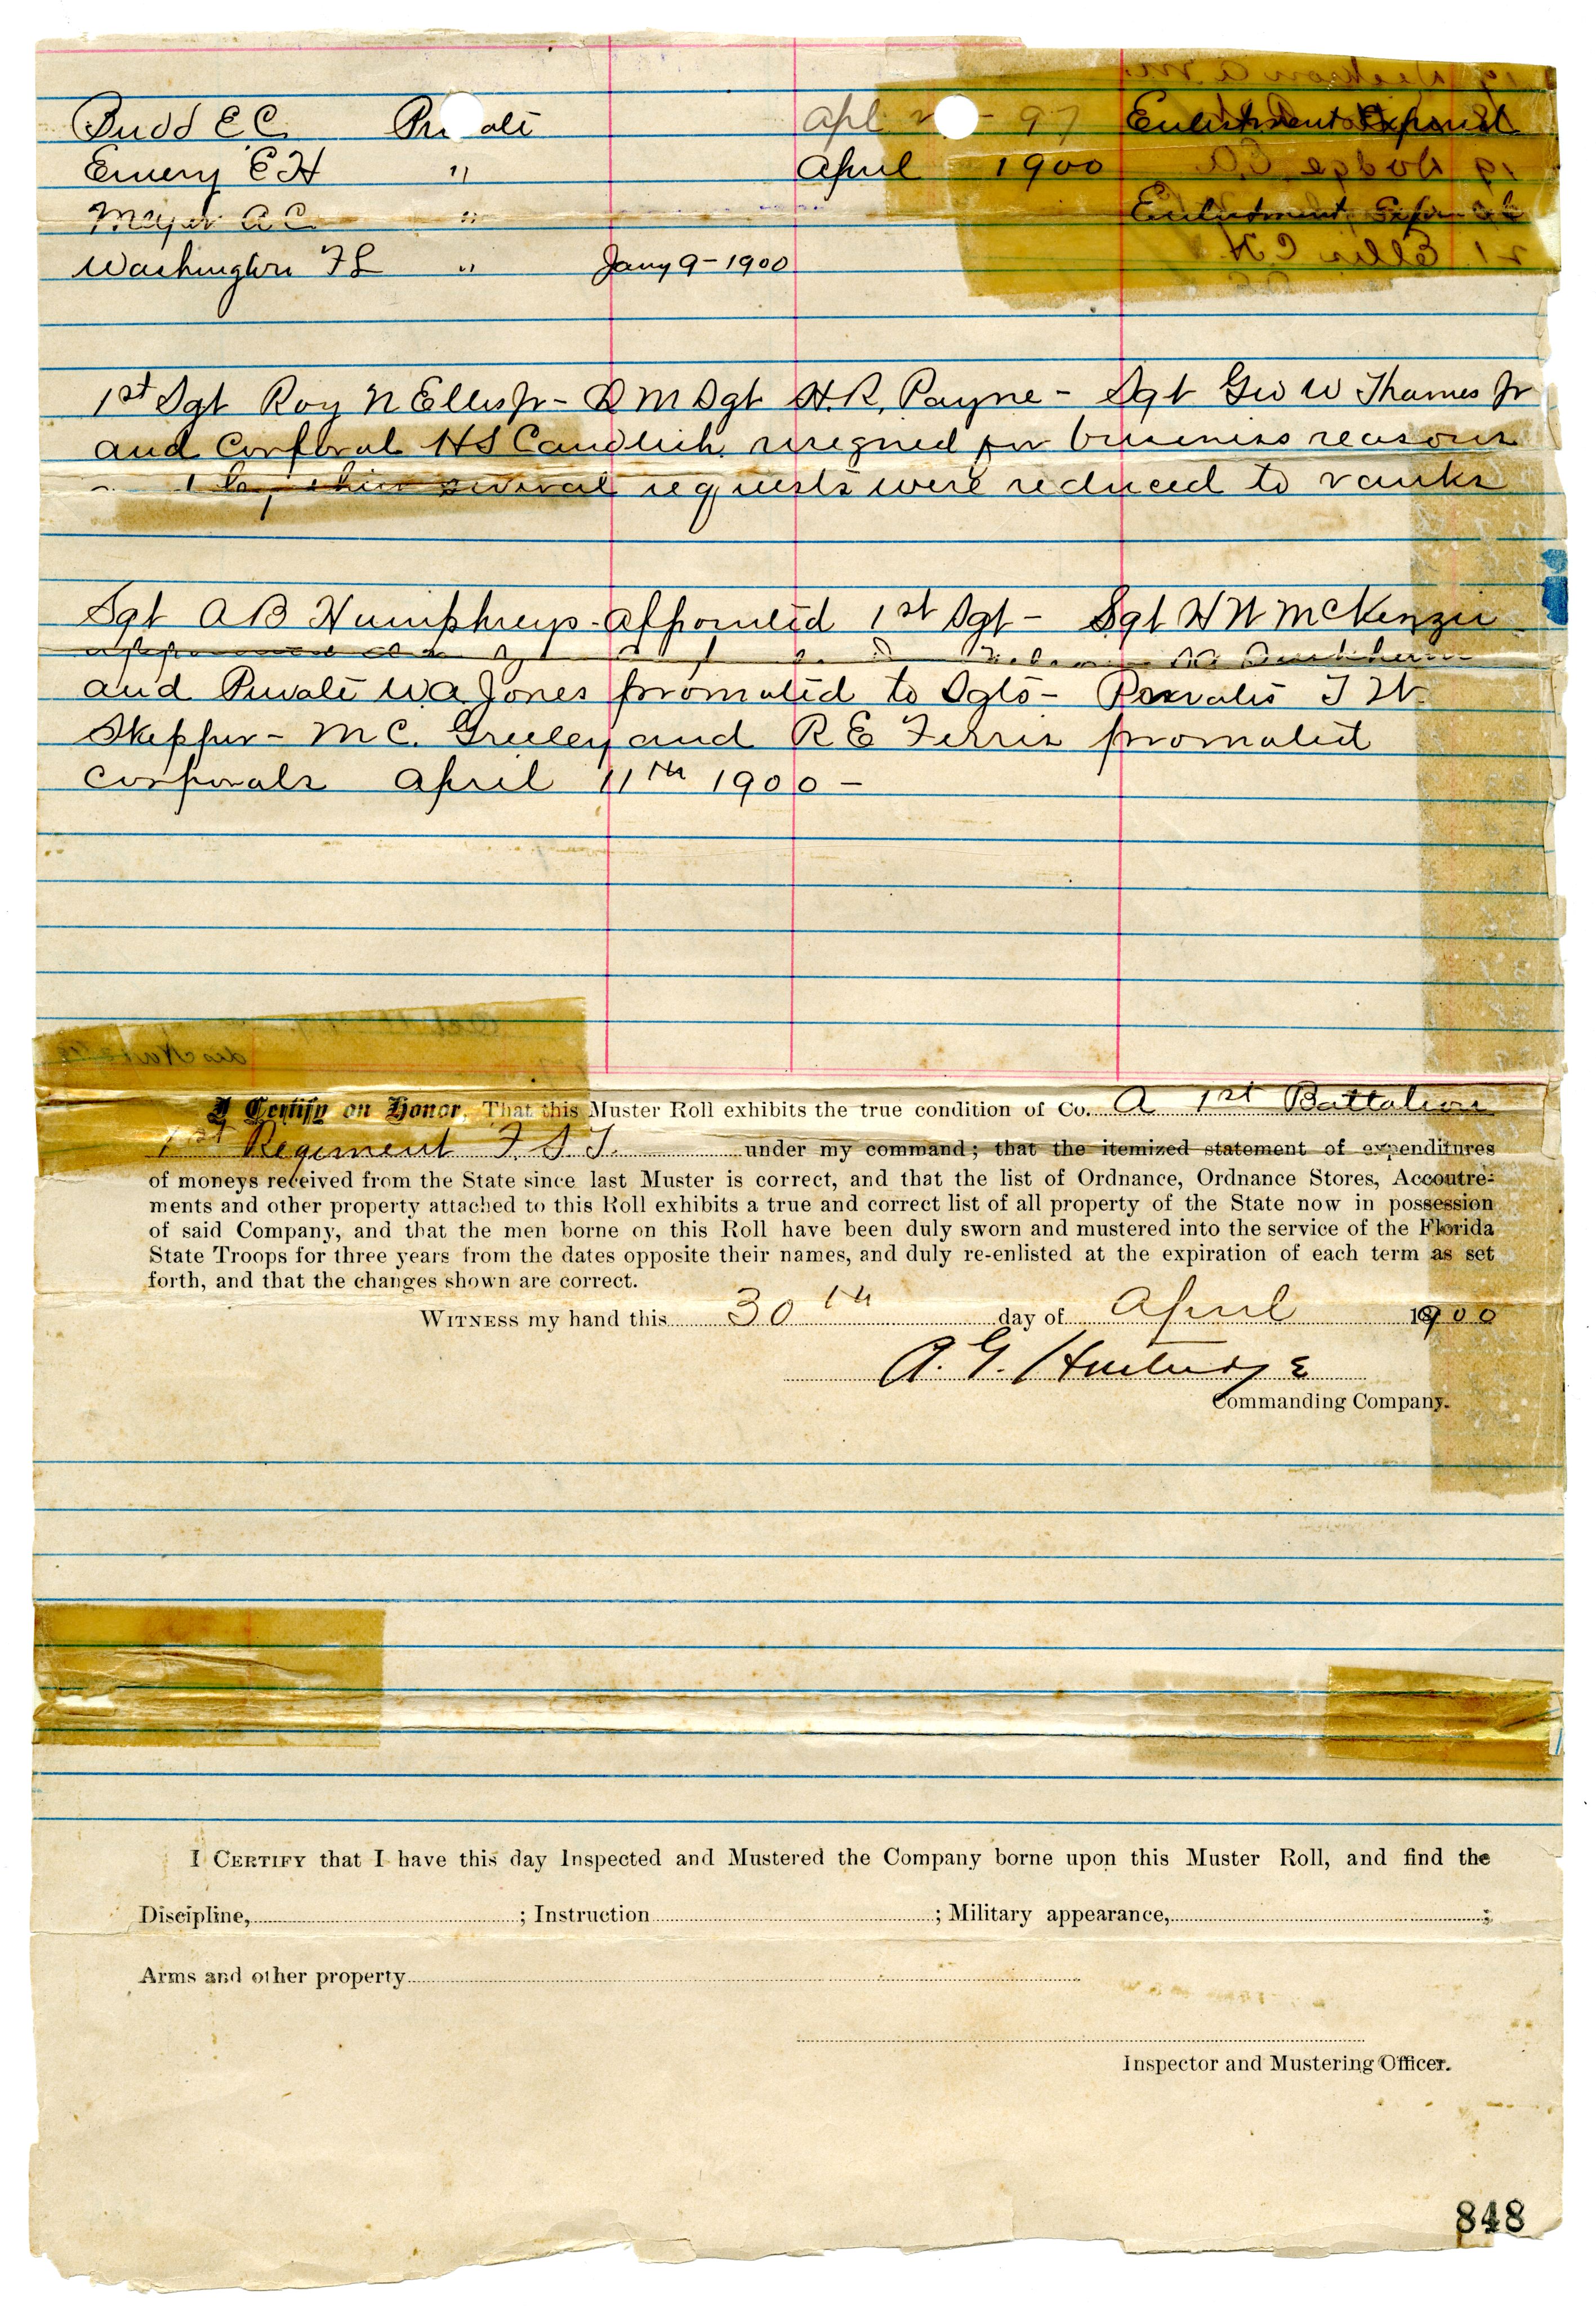 Budd E.C. Private Apl 97 Enlistment Expired
Emery E H " April 1900
Meyer A C " Enlistment
Washington F L " Jany 9-1900
1st Sgt Roy N Ellis Jr - Q M Sgt H.R. Payne - Sgt Geo W Thames Jr
and Corporal H S Candlish resigned for business reasons
their several requests were reduced to ranks
Sgt A B Humphreys - appointed 1st Sgt - Sgt H N McKenzie
and Private W.A. Jones promoted to Sgts - Privates T W
Skepper - M C. Greeley and R E Ferris promoted
Corporals April 11th 1900 -
I Certify on Honor, That this Muster Roll exhibits the true condition of Co. A 1st Battalion
1st Regiment F. S. T. under my command; that the itemized statement of expenditures
of moneys received from the State since last Muster is correct, and that the list of Ordnance, Ordnance Stores, Accoutre-
ments and other property attached to this Roll exhibits a true and correct list of all property of the State now in possession
of said Company, and that the men borne on this Roll have been duly sworn and mustered into the service of the Florida
State Troops for three years from the dates opposite their names, and duly re-enlisted at the expiration of each term as set
forth, and that the changes shown are correct.
WITNESS my hand this 30th day of April 1900
A. G. Hartridge
Commanding Company.
I CERTIFY that I have this day Inspected and Mustered the Company borne upon this Muster Roll, and find the
Discipline, ; Instruction ; Military appearance, ;
Arms and other property
Inspector and Mustering Officer.
848